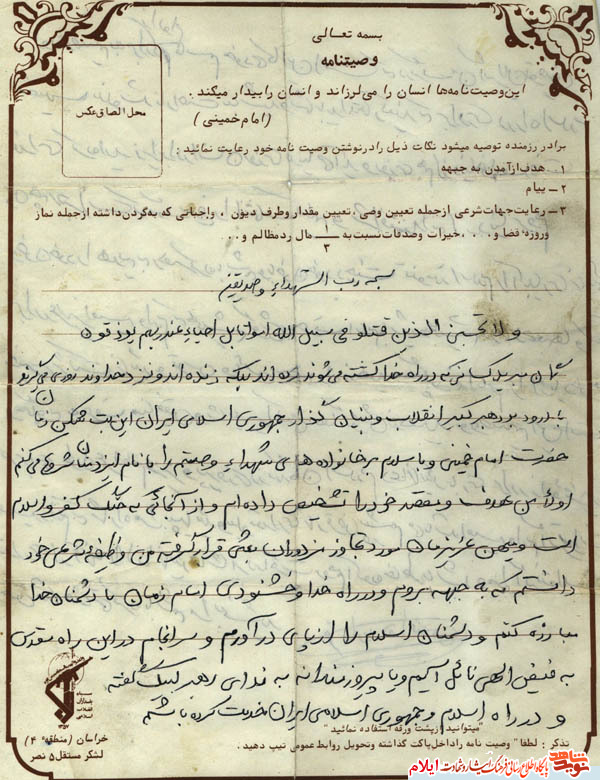 بسمه تعالی
وصیتنامه
این وصیت نامه‌ها انسان را می‌لرزاند و انسان را بیدار میکند .
( امام خمینی )
محل الصاق عکس
برادر رزمنده توصیه میشود نکات ذیل را در نوشتن وصیت نامه خود رعایت نمائید :
۱ـ هدف از آمدن به جبهه
۲ـ پیام
۳ـ رعایت جهات شرعی از جمله تعیین وصی ، تعیین مقدار و طرف دیون ، واجباتی که به گردن داشته از جمله نماز
و روزه قضا و . . . ، خیرات و صدقات نسبت به ۱/۳ مال رد مظالم و . . .
بسمه رب الشهداء و صدیقین
ولا تحسبن الذین قتلو فی سبیل الله امواتا بل احیاء عند ربهم یرذقون
گمان مبرید کسانی که در راه خدا کشته می‌شوند مرده اند بلکه زنده اند و نزد خداوند روزی می‌گیرند
با درود بر رهبر کبیر انقلاب و بنیان گذار جمهوری اسلامی ایران این بت شکن زمان
حضرت امام خمینی و با سلام بر خانواده های شهداء وصیتم را با نام ایزد منان شروع می کنم
اولاً من هدف و مقصد خود را تشخیص داده ام و از آنجائی که جنگ کفر و اسلام
است و میهن عزیزمان مورد تجاوز مزدوران بعثی قرار گرفته من وظیفه شرعی خود
دانستم که به جبهه بروم و در راه خدا و خشنودی امام زمان با دشمنان خدا
مبارزه کنم و دشمنان اسلام را از پای در آورم و سرانجام در این راه مقدس
به فیض الهی نائل آییم و یا پیروزمندانه به ندای رهبر لبیک گفته
و در راه اسلام و جمهوری اسلامی ایران خدمت کرده باشم
سپاه
پاسداران
انقلاب
اسلامی
"میتوانید از پشت ورقه استفاده نمائید"
خراسان (منطقه ۴)
لشکر مستقل ۵ نصر
تذکر : لطفا" وصیت نامه را داخل پاکت گذاشته و تحویل روابط عمومی تیپ دهید .
نوید شاهد
پایگاه اطلاع رسانی فرهنگ ایثار و شهادت ایلام